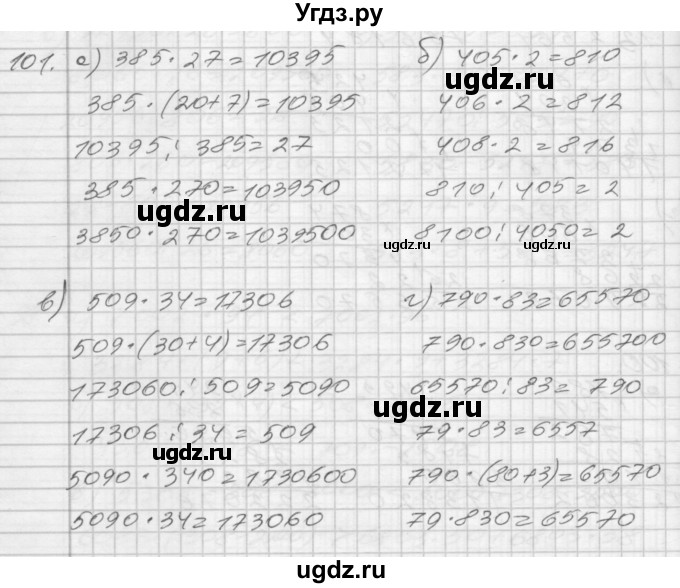 Угдз.ру
101. а) 385·27=10395
385·(20+7)=10395
10395:385=27
385·270=103950
3850·270=1039500
б) 405·2=810
406·2=812
408·2=816
810:405=2
8100:4050=2
в) 509·34=17306
509·(30+4)=17306
173060:509=5090
17306:34=509
5090·340=1730600
5090·34=173060
г) 790·83=65570
790·830=655700
65570:83=790
79·83=6557
790·(80+3)=65570
79·830=65570
ugdz.ru
ugdz.ru
ugdz.ru
ugdz.ru
ugdz.ru
ugdz.ru
ugdz.ru